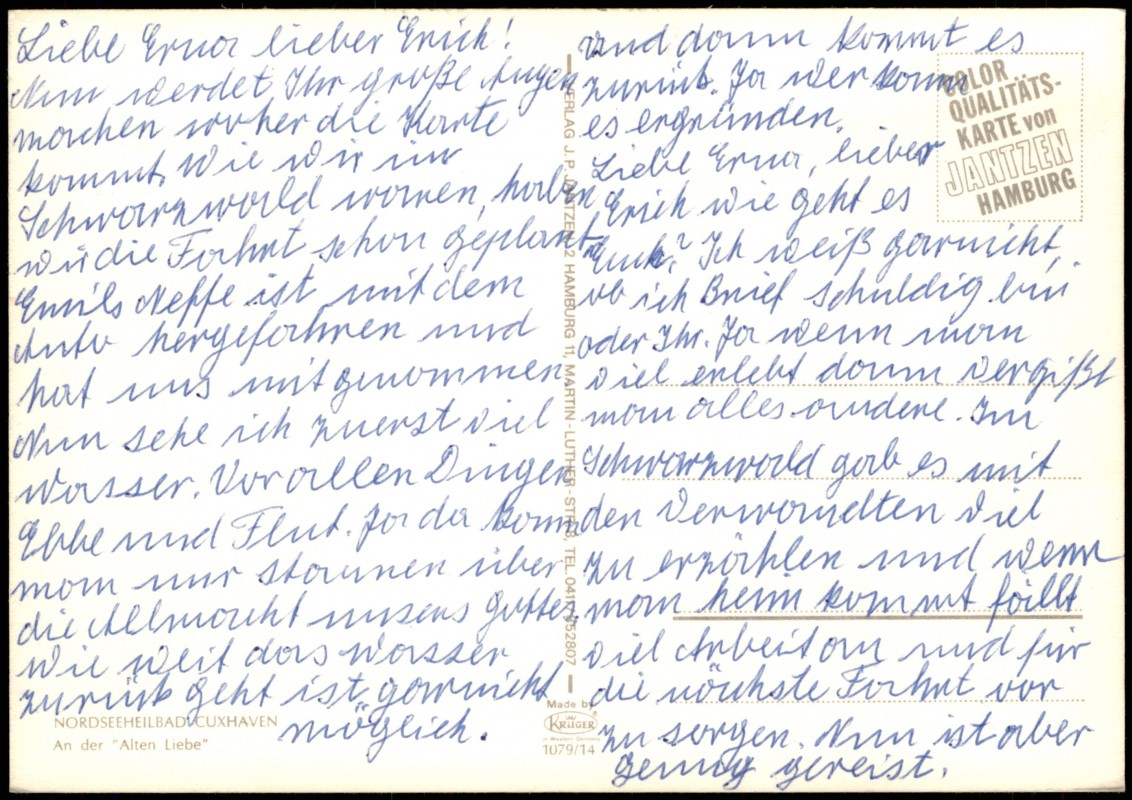 Liebe Erna lieber Erich!
Nun werdet Ihr große Augen
machen woher die Karte
kommt. Wie wir im
Schwarzwald waren, haben
wir die Fahrt schon geplant
Emils Neffe ist mit dem
Auto hergefahren und
hat uns mitgenommen
Nun sehe ich zuerst viel
Wasser. Vor allen Dingen
Ebbe und Flut. Ja da kann
man nur staunen über
die Allmacht unsers Gottes
wie weit das Wasser
zurück geht ist garnicht
möglich.
NORDSEEHEILBAD CUXHAVEN
An der "Alten Liebe"
VERLAG J. P. JANTZEN, 2 HAMBURG 11, MARTIN-LUTHER-STR. TEL.
Made by
KRÜGER
in Western Germany
1079/14
und dann kommt es
zurück. Ja wer kann
es ergründen.
Liebe Erna, lieber
Erich wie geht es
Euch? Ich weiß garnicht,
ob ich Brief schuldig bin
oder Ihr. Ja wenn man
viel erlebt dann vergißt
man alles andere. Im
Schwarzwald gab es mit
den Verwandten viel
zu erzählen und wenn
man heim kommt fällt
viel Arbeit an und für
die nächste Fahrt vor
zu sorgen. Nun ist aber
genug gereist.
COLOR
QUALITÄTS-
KARTE von
JANTZEN
HAMBURG